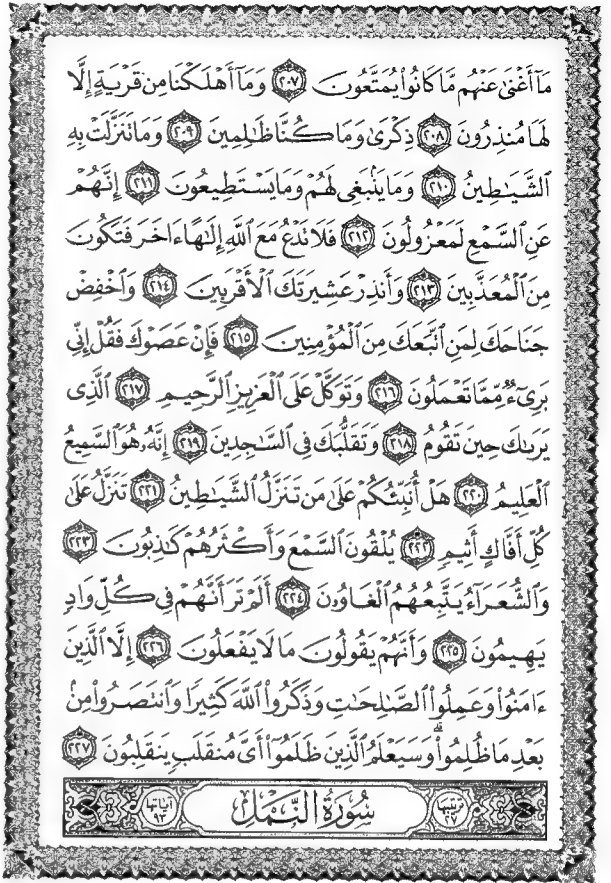 مَآ أَغۡنَىٰ عَنۡهُم مَّا كَانُواْ يُمَتَّعُونَ ٢٠٧ وَمَآ أَهۡلَكۡنَا مِن قَرۡيَةٍ إِلَّا
لَهَا مُنذِرُونَ ٢٠٨ ذِكۡرَىٰ وَمَا كُنَّا ظَٰلِمِينَ ٢٠٩ وَمَا تَنَزَّلَتۡ بِهِ
ٱلشَّيَٰطِينُ ٢١٠ وَمَا يَنۢبَغِي لَهُمۡ وَمَا يَسۡتَطِيعُونَ ٢١١ إِنَّهُمۡ
عَنِ ٱلسَّمۡعِ لَمَعۡزُولُونَ ٢١٢ فَلَا تَدۡعُ مَعَ ٱللَّهِ إِلَٰهًا ءَاخَرَ فَتَكُونَ
مِنَ ٱلۡمُعَذَّبِينَ ٢١٣ وَأَنذِرۡ عَشِيرَتَكَ ٱلۡأَقۡرَبِينَ ٢١٤ وَٱخۡفِضۡ
جَنَاحَكَ لِمَنِ ٱتَّبَعَكَ مِنَ ٱلۡمُؤۡمِنِينَ ٢١٥ فَإِنۡ عَصَوۡكَ فَقُلۡ إِنِّي
بَرِيٓءٞ مِّمَّا تَعۡمَلُونَ ٢١٦ وَتَوَكَّلۡ عَلَى ٱلۡعَزِيزِ ٱلرَّحِيمِ ٢١٧ ٱلَّذِي
يَرَىٰكَ حِينَ تَقُومُ ٢١٨ وَتَقَلُّبَكَ فِي ٱلسَّٰجِدِينَ ٢١٩ إِنَّهُۥ هُوَ ٱلسَّمِيعُ
ٱلۡعَلِيمُ ٢٢٠ هَلۡ أُنَبِّئُكُمۡ عَلَىٰ مَن تَنَزَّلُ ٱلشَّيَٰطِينُ ٢٢١ تَنَزَّلُ عَلَىٰ
كُلِّ أَفَّاكٍ أَثِيمٖ ٢٢٢ يُلۡقُونَ ٱلسَّمۡعَ وَأَكۡثَرُهُمۡ كَٰذِبُونَ ٢٢٣
وَٱلشُّعَرَآءُ يَتَّبِعُهُمُ ٱلۡغَاوُۥنَ ٢٢٤ أَلَمۡ تَرَ أَنَّهُمۡ فِي كُلِّ وَادٖ
يَهِيمُونَ ٢٢٥ وَأَنَّهُمۡ يَقُولُونَ مَا لَا يَفۡعَلُونَ ٢٢٦ إِلَّا ٱلَّذِينَ
ءَامَنُواْ وَعَمِلُواْ ٱلصَّٰلِحَٰتِ وَذَكَرُواْ ٱللَّهَ كَثِيرٗا وَٱنتَصَرُواْ مِنۢ
بَعۡدِ مَا ظُلِمُواْۗ وَسَيَعۡلَمُ ٱلَّذِينَ ظَلَمُوٓاْ أَيَّ مُنقَلَبٖ يَنقَلِبُونَ ٢٢٧
ترتيبها ٢٧ سُورَةُ ٱلنَّمۡلِ آياتها ٩٣